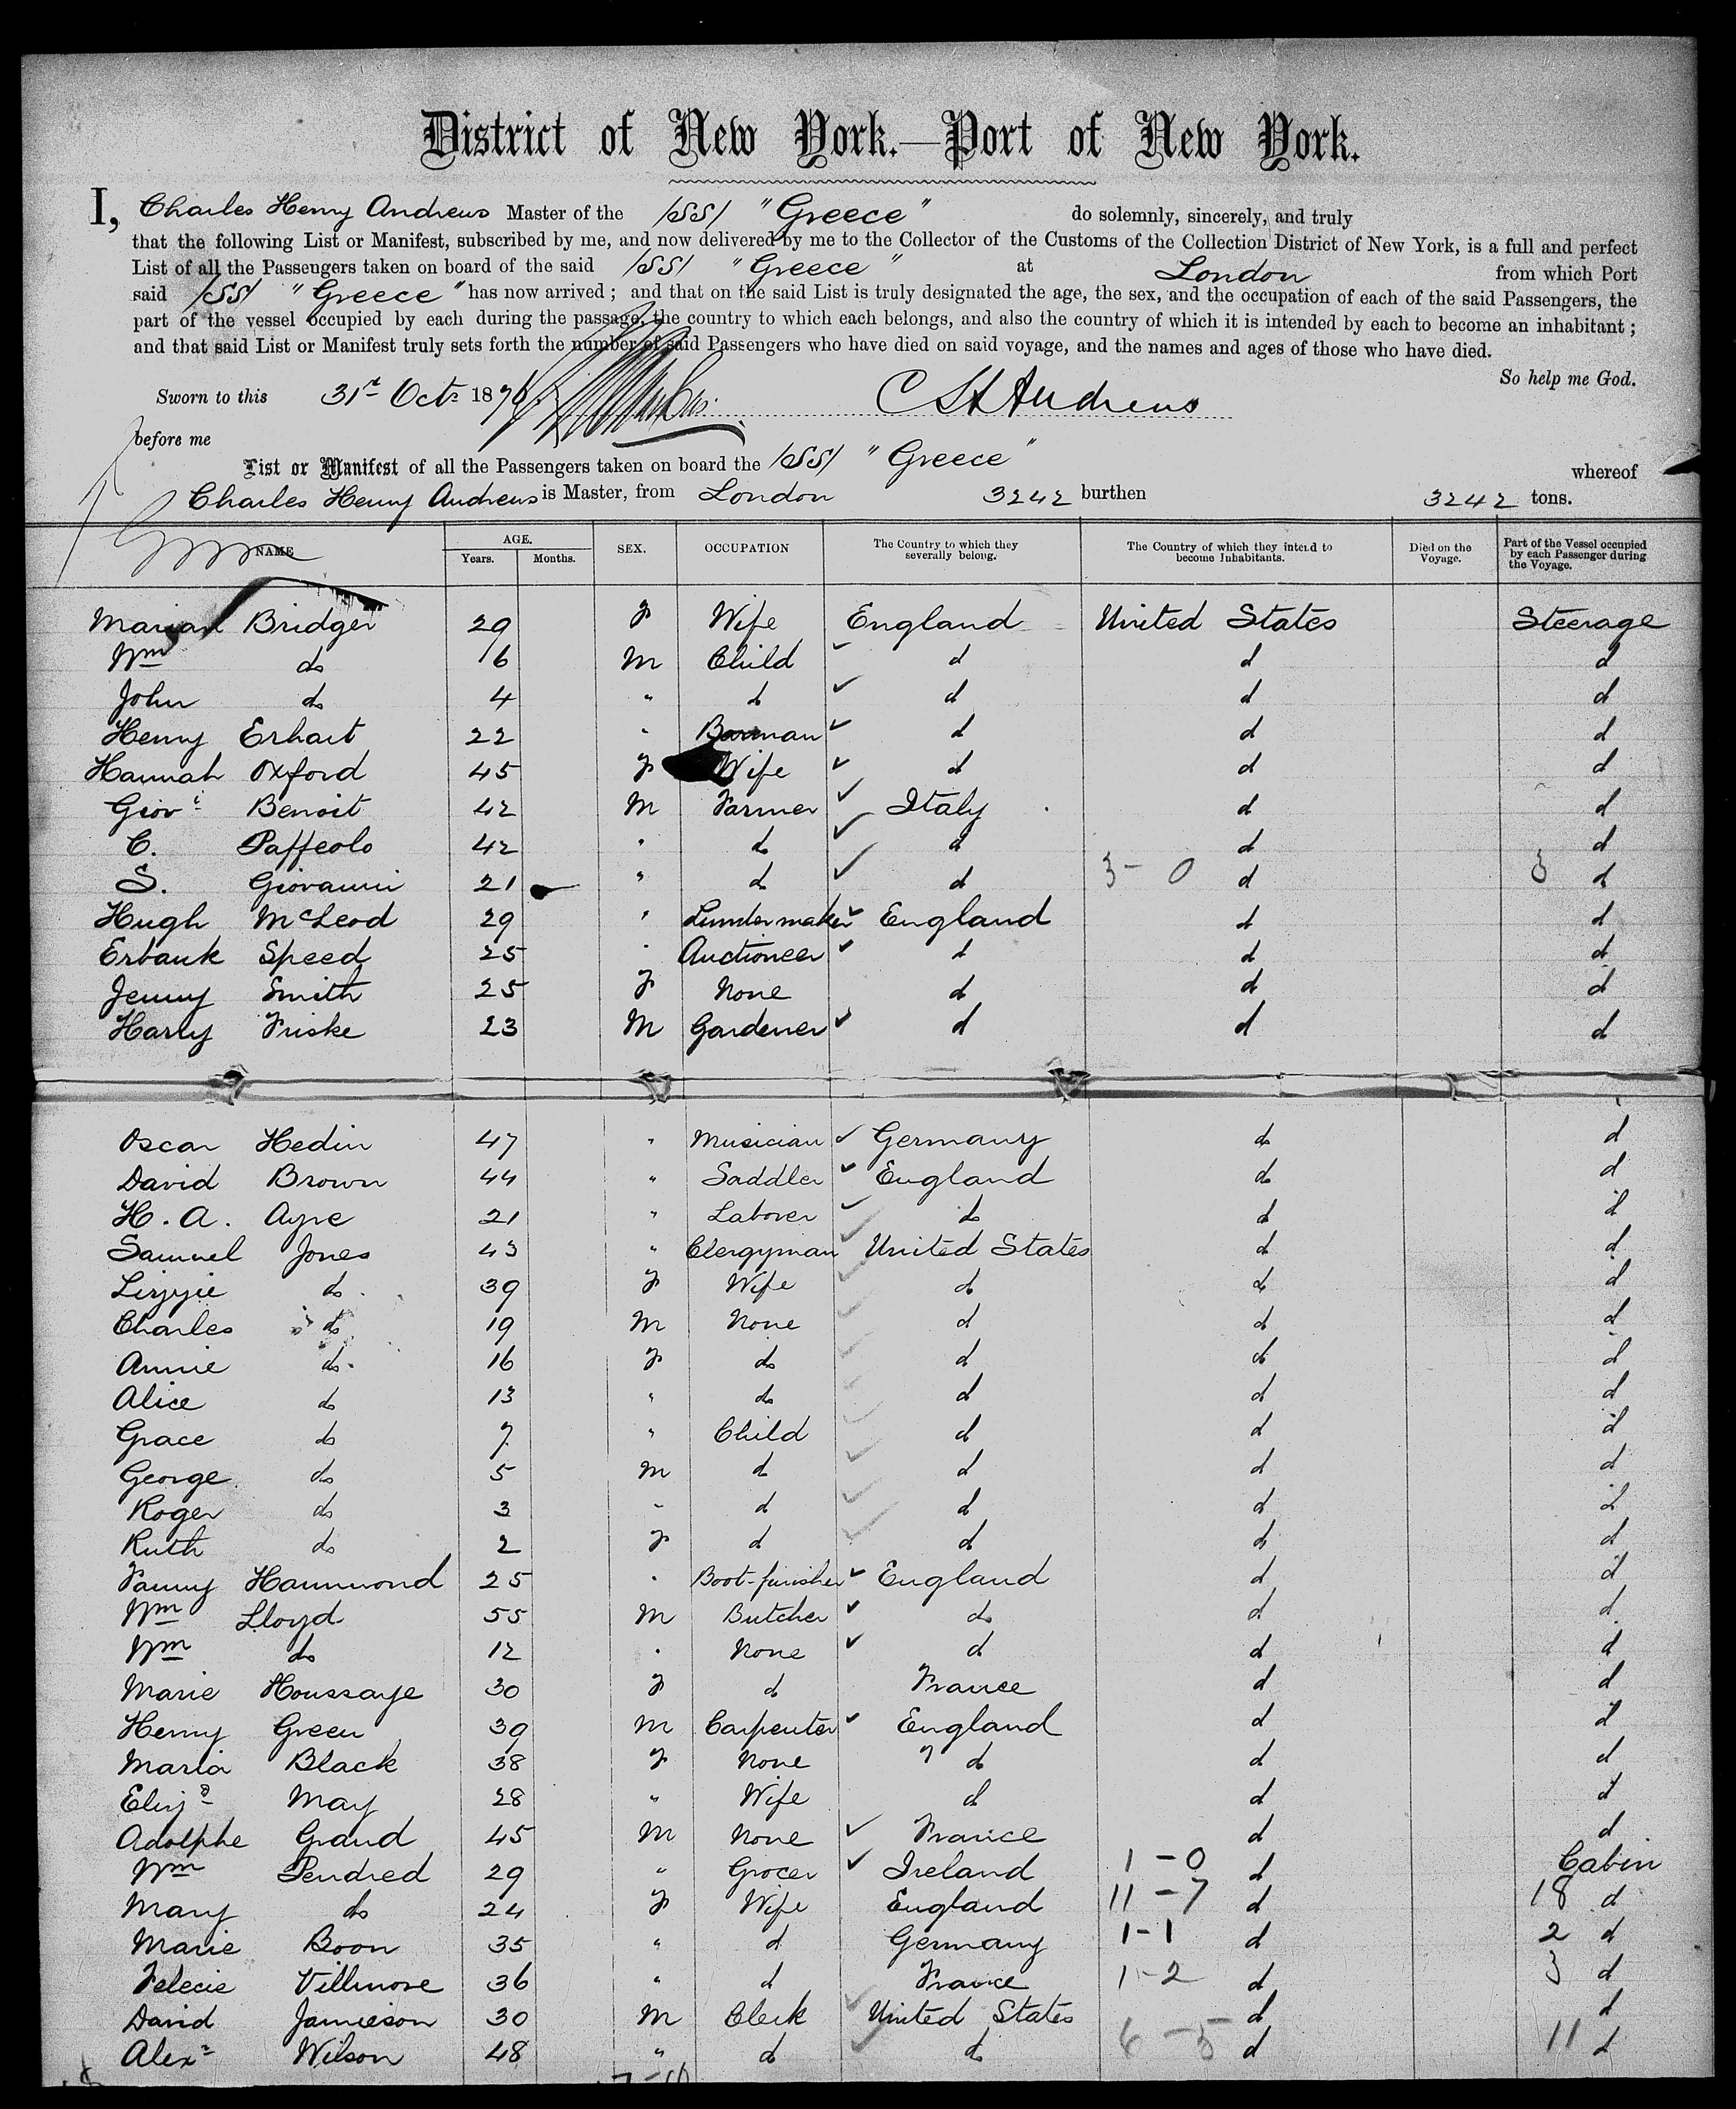 District of New York.—Port of New York.
I, Charles Henry Andrews Master of the /SS/ "Greece" do solemnly, sincerely, and truly
that the following List or Manifest, subscribed by me, and now delivered by me to the Collector of the Customs of the Collection District of New York, is a full and perfect
List of all the Passengers taken on board of the said /SS/ "Greece" at London from which Port
said /SS/ "Greece" has now arrived; and that on the said List is truly designated the age, the sex, and the occupation of each of the said Passengers, the
part of the vessel occupied by each during the passage, the country to which each belongs, and also the country of which it is intended by each to become an inhabitant;
and that said List or Manifest truly sets forth the number of said Passengers who have died on said voyage, and the names and ages of those who have died.
So help me God.
Sworn to this 31st Oct 1876 C H Andrews
before me
List or Manifest of all the Passengers taken on board the /SS/ "Greece" whereof
Charles Henry Andrews is Master, from London 3242 burthen 3242 tons.
NAME AGE. Years. Months. SEX. OCCUPATION The Country to which they severally belong. The Country of which they intend to become Inhabitants. Died on the Voyage. Part of the Vessel occupied by each Passenger during the Voyage.
Marian Bridger 29 F Wife England United States Steerage
Wm do 6 M Child d d d
John do 4 " d d d d
Henry Erhart 22 " Barman d d d
Hannah Oxford 45 F Wife d d d
Giovi Benoit 42 M Farmer Italy d d
C. Paffeolo 42 " do d d d
S. Giovanni 21 " d d 3-0 d 3 d
Hugh McLeod 29 " England d d
Erbank Speed 25 " Auctioneer d d d
Jenny Smith 25 F None d d d
Harry Friske 23 M Gardener d d d
Oscar Hedin 47 " Musician Germany do d
David Brown 44 " Saddler England do d
H. A. Ayre 21 " Laborer do d d
Samuel Jones 43 " Clergyman United States d d
Lizzie do 39 F Wife do do d
Charles do 19 M None d d d
Annie do 16 F do d do d
Alice do 13 " do d d d
Grace do 7 " Child d d d
George do 5 M d d d d
Roger do 3 " d d d d
Ruth do 2 F d d d d
Fanny Hammond 25 " Boot-finisher England d d
Wm Lloyd 55 M Butcher do d d
Wm do 12 " None d d d
Marie Houssaye 30 F d France d d
Henry Green 39 M Carpenter England d d
Maria Black 38 F None " do d d
Eliza May 28 " Wife d d d
Adolphe Grand 45 M None France d d
Wm Pendred 29 " Grocer Ireland 1-0 d Cabin
Mary do 24 F Wife England 11-7 d 18 d
Marie Boon 35 " d Germany 1-1 d 2 d
Felecie Villmore 36 " d France 1-2 d 3 d
David Jamieson 30 M Clerk United States d d
Alexr Wilson 48 " d do 6-5 d 11 d